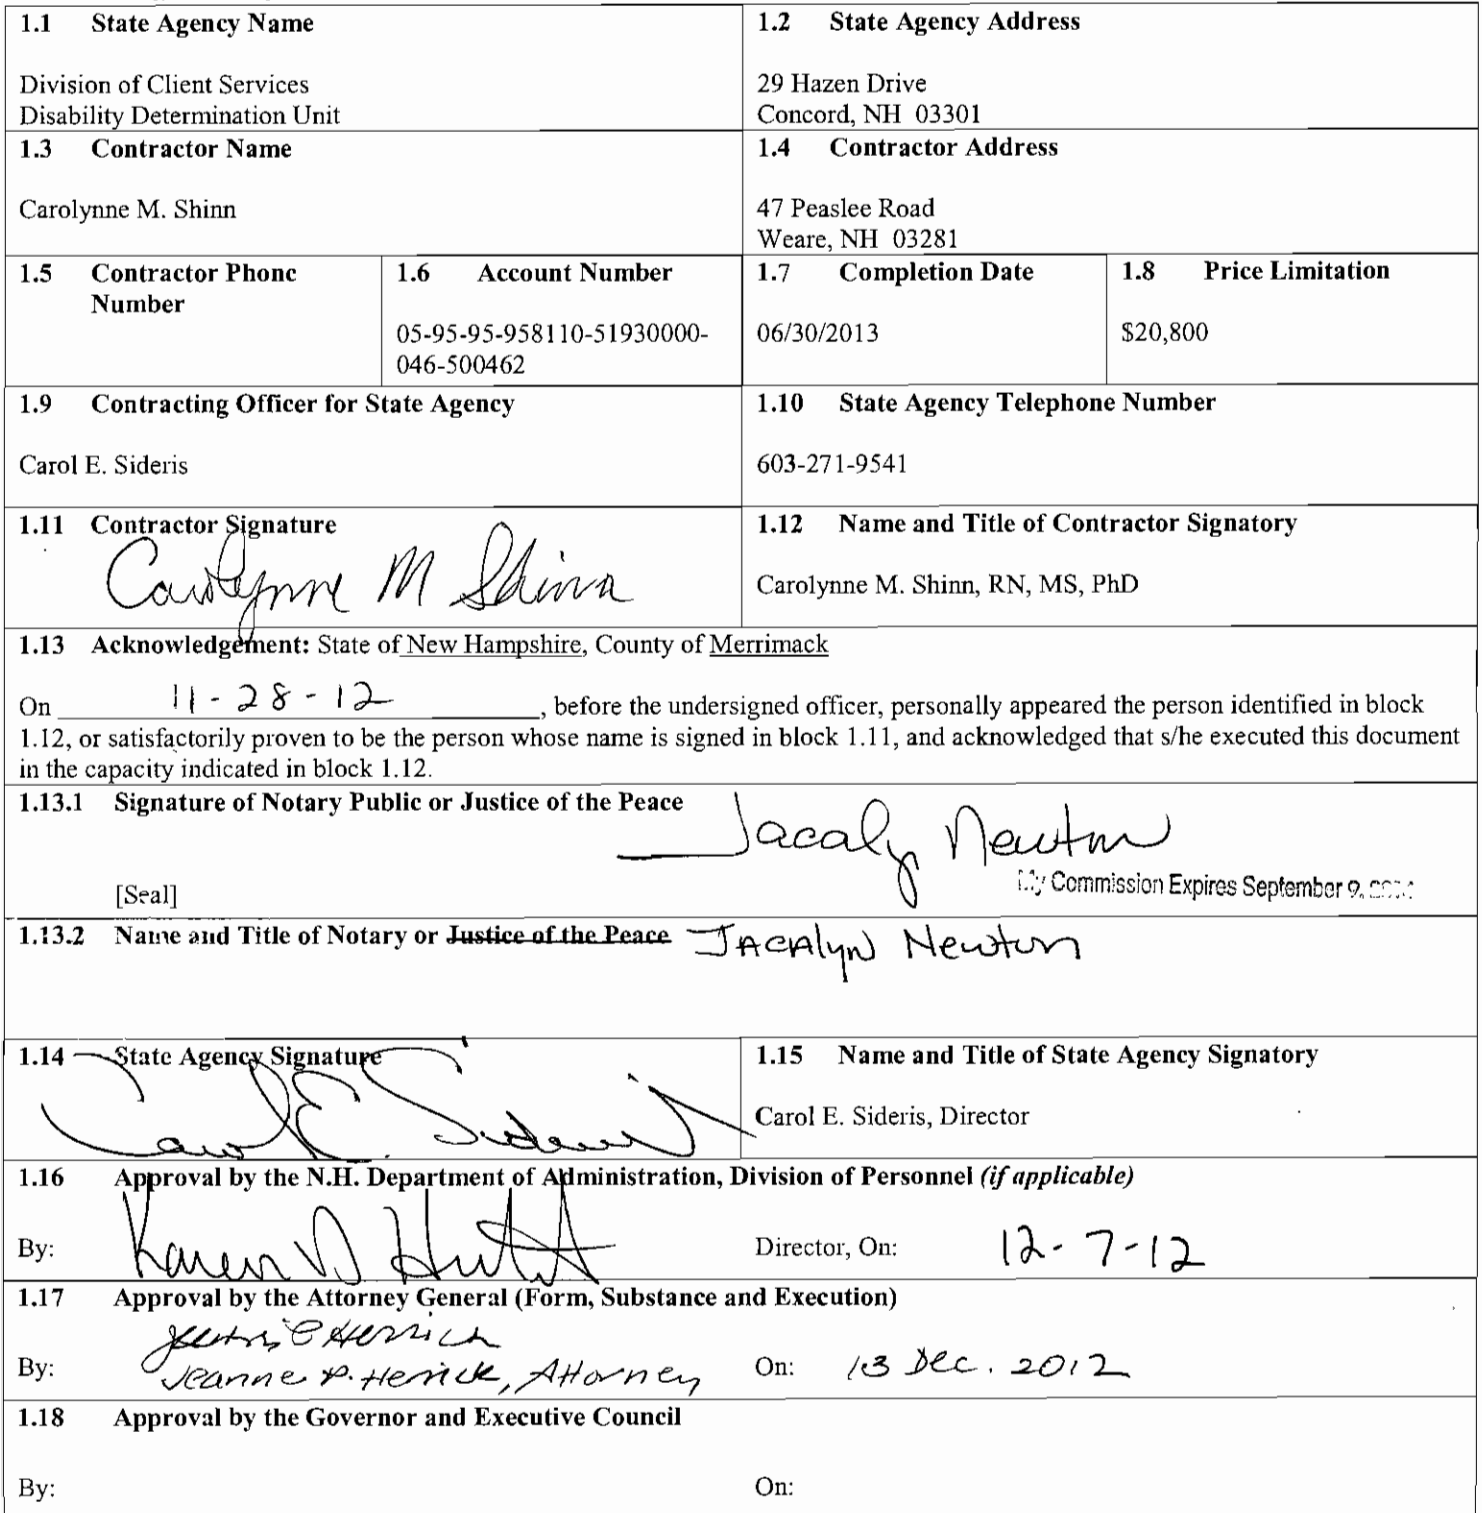 1.1 State Agency Name
Division of Client Services
Disability Determination Unit
1.2 State Agency Address
29 Hazen Drive
Concord, NH 03301
1.3 Contractor Name
Carolynne M. Shinn
1.4 Contractor Address
47 Peaslee Road
Weare, NH 03281
1.5 Contractor Phone
Number
1.6 Account Number
05-95-95-958110-51930000-
046-500462
1.7 Completion Date
06/30/2013
1.8 Price Limitation
$20,800
1.9 Contracting Officer for State Agency
Carol E. Sideris
1.10 State Agency Telephone Number
603-271-9541
1.11 Contractor Signature
Carolynne M Shinn
1.12 Name and Title of Contractor Signatory
Carolynne M. Shinn, RN, MS, PhD
1.13 Acknowledgement: State of New Hampshire, County of Merrimack
On 11-28-12, before the undersigned officer, personally appeared the person identified in block
1.12, or satisfactorily proven to be the person whose name is signed in block 1.11, and acknowledged that s/he executed this document
in the capacity indicated in block 1.12.
1.13.1 Signature of Notary Public or Justice of the Peace
Jacalyn Newton
My Commission Expires September 9,
[Seal]
1.13.2 Name and Title of Notary or Justice of the Peace JACAlyn Newton
1.14 State Agency Signature
Carol E. Sideris
1.15 Name and Title of State Agency Signatory
Carol E. Sideris, Director
1.16 Approval by the N.H. Department of Administration, Division of Personnel (if applicable)
By: Karen D Director, On: 12-7-12
1.17 Approval by the Attorney General (Form, Substance and Execution)
By: Jeanne P. Herrick, Attorney On: 13 Dec. 2012
1.18 Approval by the Governor and Executive Council
By: On: